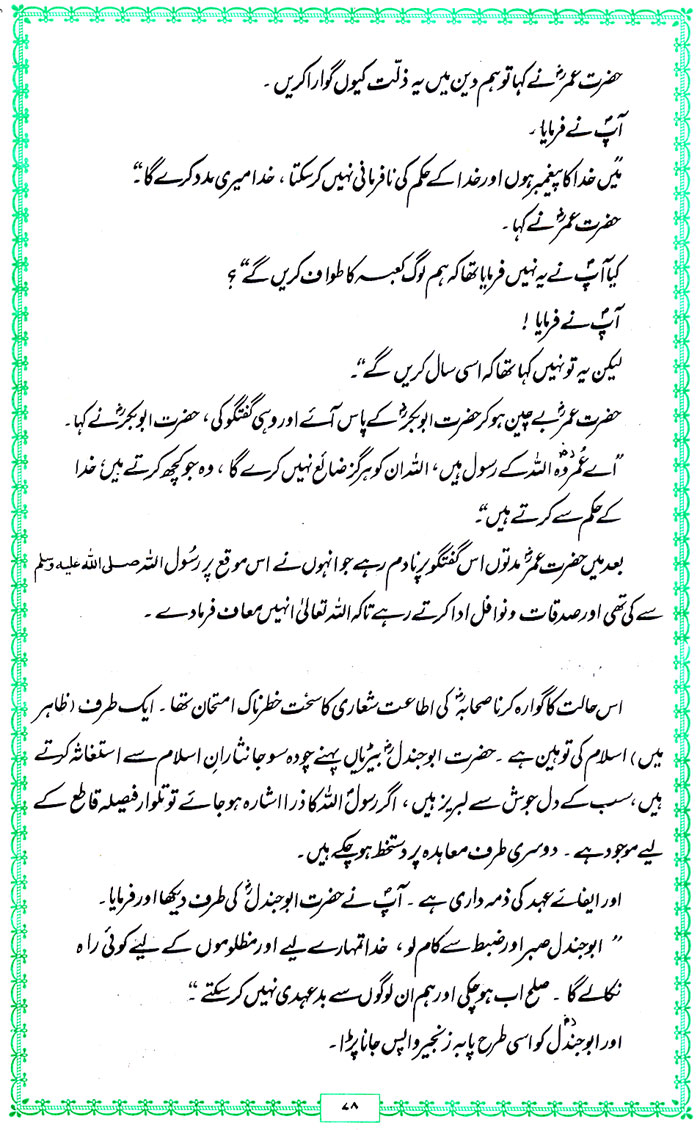 حضرت عمرؓ نے کہا تو ہم دین میں یہ ذلّت کیوں گوارا کریں ۔
آپؐ نے فرمایا ۔
”میں خدا کا پیغمبر ہوں اور خدا کے حکم کی نافرمانی نہیں کر سکتا ، خدا میری مدد کرے گا ۔“
حضرت عمرؓ نے کہا ۔
کیا آپؐ نے یہ نہیں فرمایا تھا کہ ہم لوگ کعبہ کا طواف کریں گے“ ؟
آپؐ نے فرمایا !
لیکن یہ تو نہیں کہا تھا کہ اسی سال کریں گے“۔
حضرت عمرؓ بے چین ہو کر حضرت ابو بکرؓ کے پاس آئے اور وہی گفتگو کی ، حضرت ابو بکرؓ نے کہا ۔
”اے عُمرؓ وہ اللہ کے رسول ہیں ، اللہ ان کو ہرگز ضائع نہیں کرے گا ، وہ جو کچھ کرتے ہیں، خدا
کے حکم سے کرتے ہیں“۔
بعد میں حضرت عمرؓ مدتوں اس گفتگو پر نادم رہے جو انہوں نے اس موقع پر رسُول اللہ صلی اللہ علیہ وسلم
سے کی تھی اور صدقات و نوافل ادا کرتے رہے تاکہ اللہ تعالیٰ انہیں معاف فرما دے ۔
اس حالت کا گوارہ کرنا صحابہؓ کی اطاعت شعاری کا سخت خطرناک امتحان تھا ۔ ایک طرف (ظاہر
میں) اسلام کی توہین ہے ۔ حضرت ابو جندلؓ بیڑیاں پہنے چودہ سو جانثارانِ اسلام سے استغاثہ کرتے
ہیں ، سب کے دل جوش سے لبریز ہیں ، اگر رسولؐ اللہ کا ذرا اشارہ ہو جائے تو تلوار فیصلہ قاطع کے
لیے موجود ہے ۔ دوسری طرف معاہدہ پر دستخط ہو چکے ہیں ۔
اور ایفائے عہد کی ذمہ داری ہے ۔ آپؐ نے حضرت ابو جندلؓ کی طرف دیکھا اور فرمایا ۔
” ابو جندل صبر اور ضبط سے کام لو ، خدا تمہارے لیے اور مظلوموں کے لیے کوئی راہ
نکالے گا ۔ صلح اب ہو چکی اور ہم ان لوگوں سے بدعہدی نہیں کر سکتے ۔“
اور ابو جندلؓ کو اسی طرح پابہ زنجیر واپس جانا پڑا ۔
۷۸